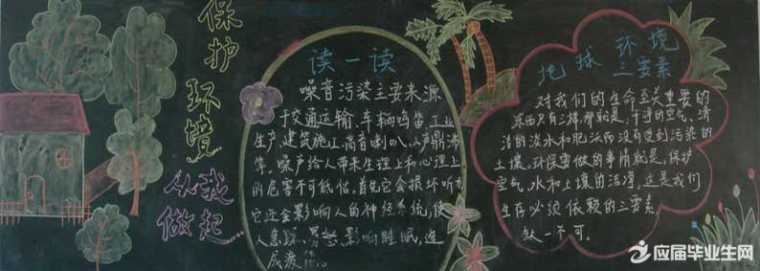 保护环境
从我
做起
读一读
噪音污染主要来源
于交通运输、车辆鸣笛、工业
生产、建筑施工、高音喇叭、人声鼎沸
等。噪声给人带来生理上和心理上
的危害不可低估。首先它会损坏听力
它还会影响人的神经系统，使
人急躁、易怒影响睡眠，造
成疲
地球环境
三要素
对我们的生命至关重要的
东西只有三样，那就是，干净的空气、清
洁的淡水和肥沃而没有受到污染的
土壤。环保要做的事情就是，保护
空气、水和土壤的洁净，这是我们
生存必须依赖的三要素，
缺一不可。
应届毕业生网